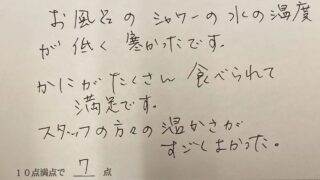 お風呂の シャワーの水の温度
が低く 寒かったです。
かにがたくさん 食べられて
満足です。
スタッフの方々の 温かさが
すごくよかった。
10点満点で 7 点